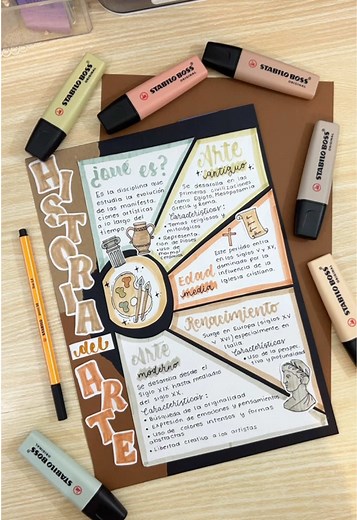 HISTORIA
del
ARTE
¿qué es?
Es la disciplina que
estudia la evolución
de las manifesta
ciones artísticas
a lo largo del
tiempo.
Arte
antiguo
Se desarrolla en las
primeras civilizaciones
como Egipto, Mesopotamia
Grecia y Roma.
Características
• Temas religiosos y
mitológicos
• Representa
ción de dioses
• Uso de
Edad
media
Este periodo entre
en los siglos V y XV,
dominado por la
influencia de la
iglesia cristiana.
Renacimiento
Surge en Europa (siglos XV
y XVI) especialmente, en
Italia
Características
• Uso de la perspec
tiva y profundidad
Arte
moderno
Se desarrolla desde el
siglo XIX hasta mediados
del siglo XX.
Características:
• Búsqueda de la originalidad
• Expresión de emociones y pensamientos
• Uso de colores intensos y formas
abstractas
• Libertad creativa a los artistas
STABILO BOSS
ORIGINAL
STABILO BOSS
ORIGINAL
STABILO BOSS
ORIGINAL
STABILO BOSS
ORIGINAL
STABILO BOSS
STABILO BOSS
ORIGINAL